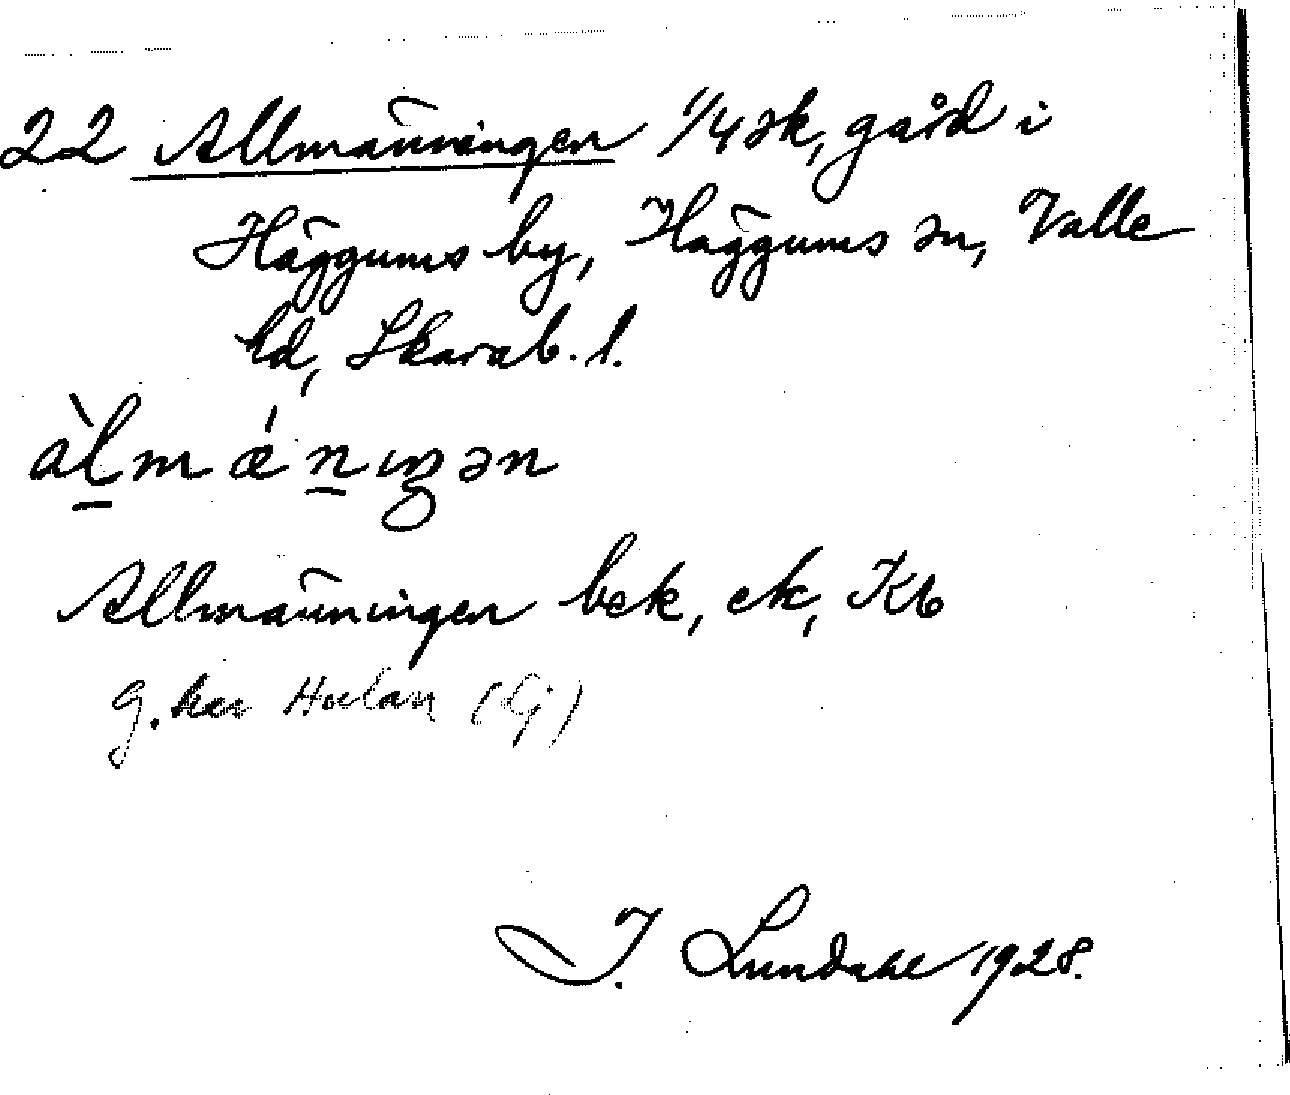 22 Allmänningen 1/4 sk, gård i
Häggums by, Häggums sn, Valle
hd, Skarab. l.
àl̠mǽn̠ɪŋən
Allmänningen bek, ek, Kb
g. här Holan (Lj)
I. Lundahl 1928.